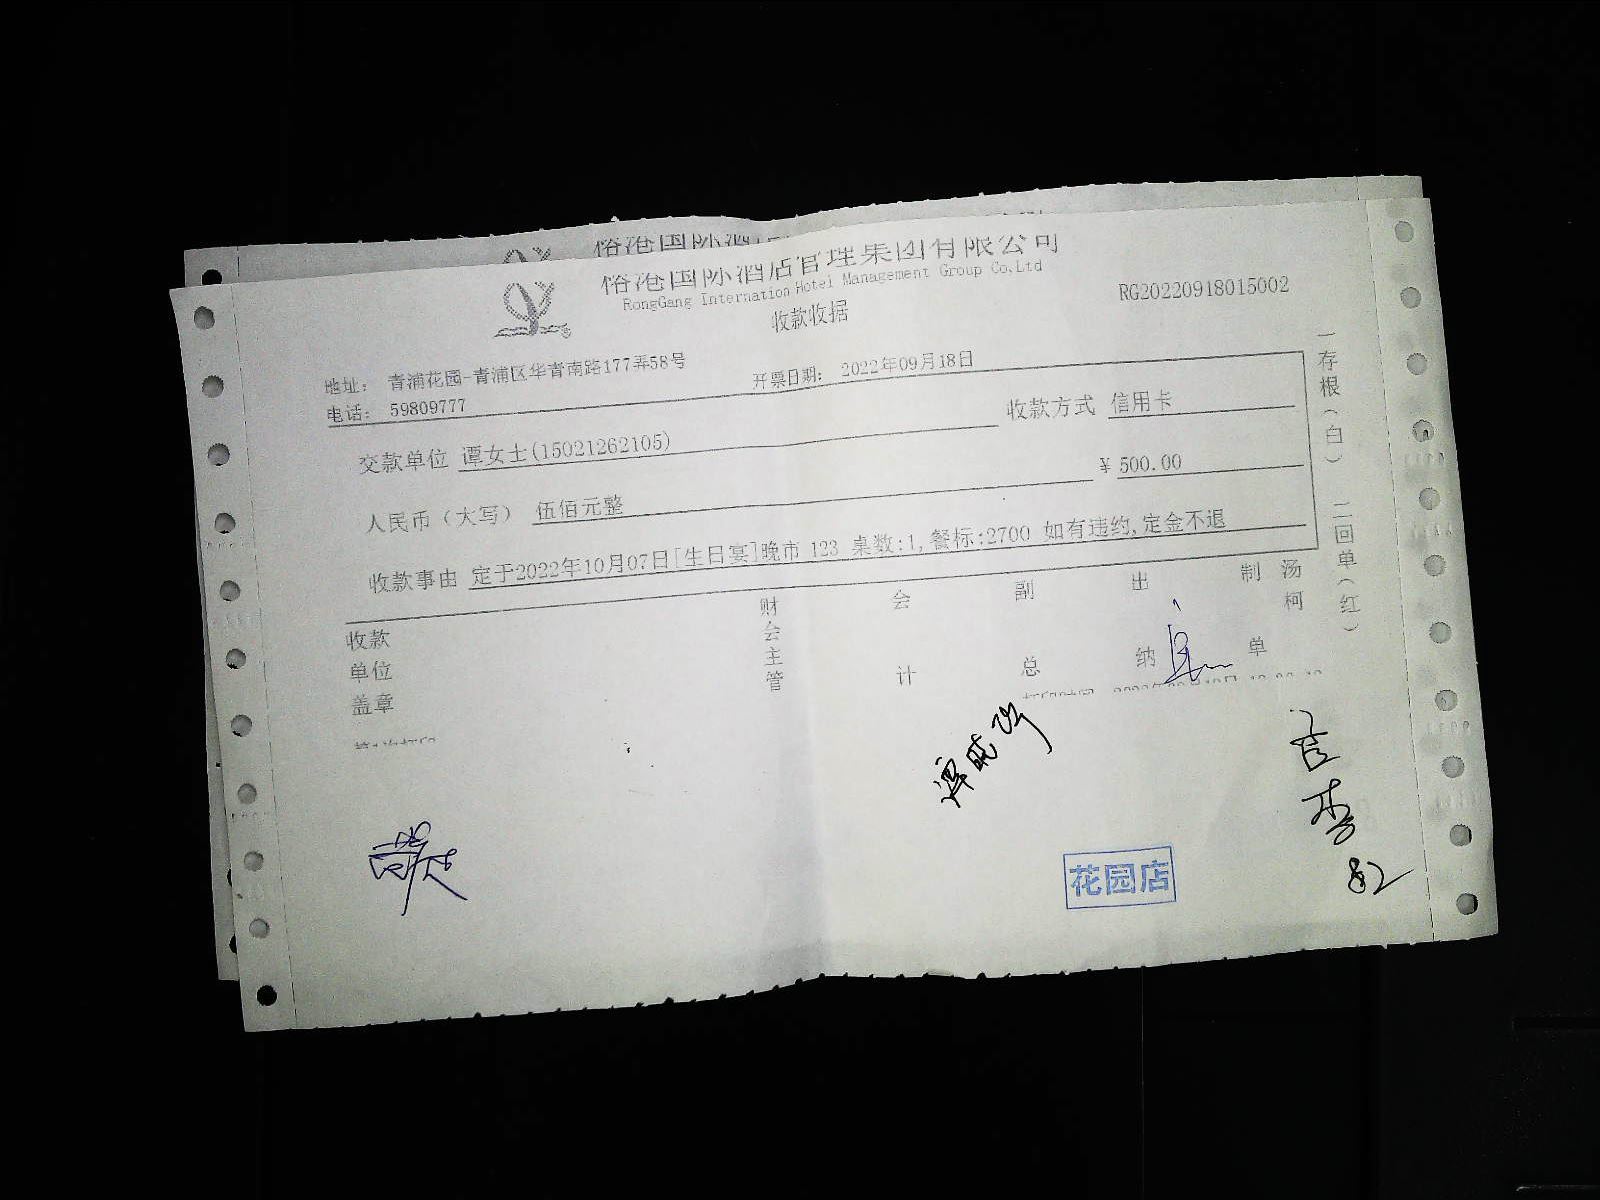 国际酒店管理集团有限公司
RongGang Internation Hotel Management Group Co,Ltd
收款收据
RG20220918015002
地址： 青浦花园-青浦区华青南路177弄58号
开票日期： 2022年09月18日
电话： 59809777
收款方式 信用卡
交款单位 谭女士(15021262105)
人民币（大写） 伍佰元整
¥ 500.00
收款事由 定于2022年10月07日[生日宴]晚市 123 桌数:1,餐标:2700 如有违约,定金不退
收款单位盖章
财会主管
会计
副总
出纳
制单
汤柯
一存根（白）
二回单（红）
花园店